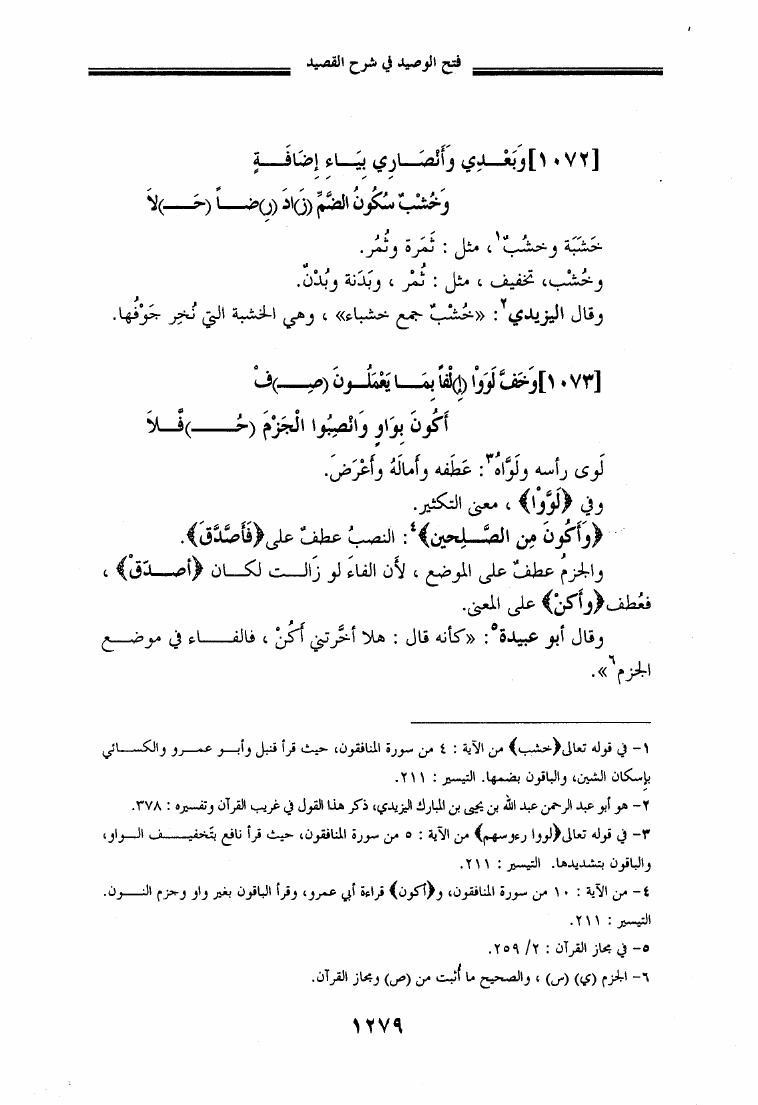 فتح الوصيد في شرح القصيد
[١٠٧٢] وَبَعْـدِي وَأَنْصَـارِي بِيَـاءِ إِضَافَـةٍ
وَخُشْبٌ سُكُونُ الضَّمِّ (زَ)ادَ (رِ)ضـاً (حَـ)ـلاَ
خَشَبَة وخشُبٌ١، مثل : ثَمَرة وثُمُر.
وخُشْب، تخفيف ، مثل : ثُمْر ، وبَدَنة وبُدْنٌ.
وقال اليزيدي٢: «خُشْبٌ جمع خشباء» ، وهي الخشبة التي نُخِر جَوْفُها.
[١٠٧٣] وَخَفَّ لَوَوْا (إِ)لْفاً بِمَـا يَعْمَلُـونَ (صِـ)ـفْ
أَكُونَ بِوَاوٍ وَانْصِبُوا الْجَزْمَ (حُـ)ـفَّـلاَ
لَوى رأسه ولَوَّاهُ٣: عَطَفه وأَمالَهُ وأَعْرَضَ.
وفي ﴿لَوَّوْا﴾ ، معنى التكثير.
﴿وَأَكُونَ مِن الصَّـلِحين﴾٤: النصبُ عطفٌ على ﴿فَأَصَّدَّقَ﴾.
والجزمُ عطفٌ على الموضع ، لأن الفاءَ لو زَالـت لكـان ﴿أَصـدّقْ﴾ ،
فعُطف ﴿وأكنْ﴾ على المعنى.
وقال أبو عبيدة٥: «كأنه قال : هلا أخَّرتني أَكُنْ ، فالفـاء في موضـع
الجزم٦».
١- في قوله تعالى ﴿خشب﴾ من الآية : ٤ من سورة المنافقون، حيث قرأ قنبل وأبـو عمـرو والكسـائي
بإسكان الشين، والباقون بضمها. التيسير : ٢١١.
٢- هو أبو عبد الرحمن عبد الله بن يحيى بن المبارك اليزيدي، ذكر هذا القول في غريب القرآن وتفسيره : ٣٧٨.
٣- في قوله تعالى ﴿لووا رءوسهم﴾ من الآية : ٥ من سورة المنافقون، حيث قرأ نافع بتخفيـف الـواو،
والباقون بتشديدها. التيسير : ٢١١.
٤- من الآية : ١٠ من سورة المنافقون، و﴿أكون﴾ قراءة أبي عمرو، وقرأ الباقون بغير واو وجزم النـون.
التيسير : ٢١١.
٥- في مجاز القرآن : ٢/ ٢٥٩.
٦- الجزم (ي) (س) ، والصحيح ما أُثبت من (ص) ومجاز القرآن.
١٢٧٩